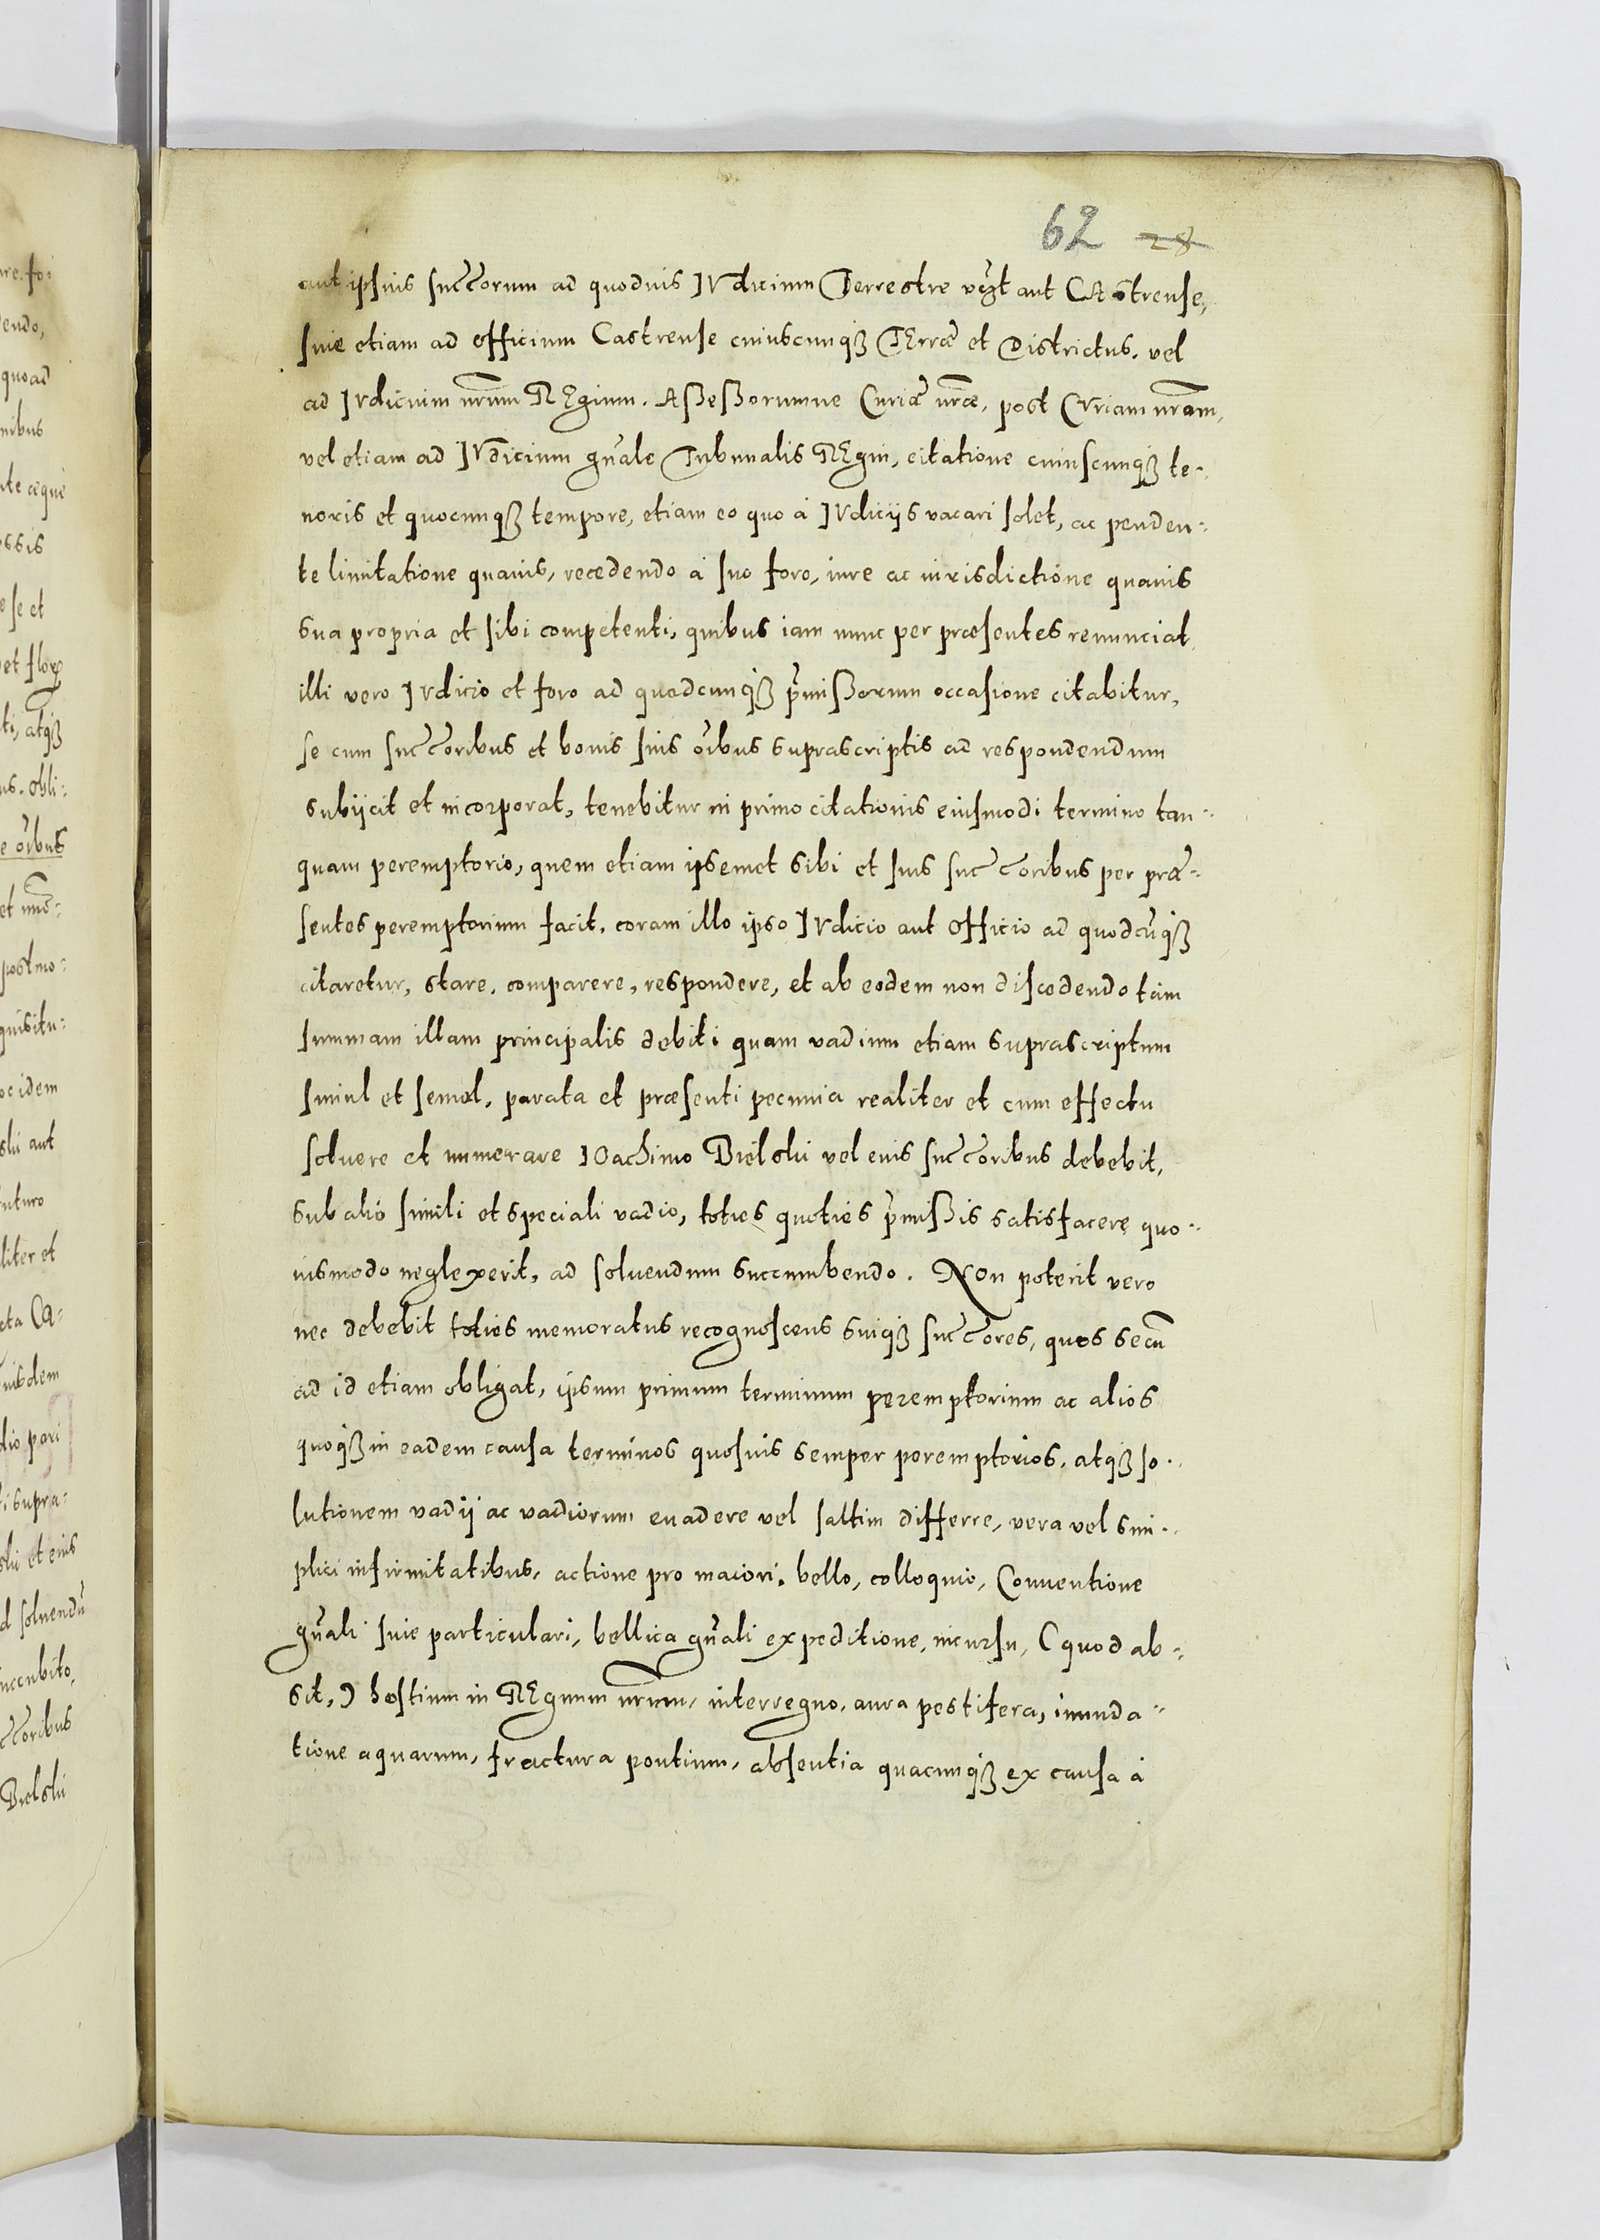 62 28
aut ipsius succorum ad quoduis IVdicium Terrestre vgt aut CAstrense,
siue etiam ad officium Castrense cuiuscunqꝫ TErræ et Districtus, vel
ad IVdicium nrum REgium. Aßeßorumue Curiæ nræ, post CVriam nram,
vel etiam ad IVdicium gnale Tribunalis REgni, citatione cuiuscunqꝫ te-
noris et quocunqꝫ tempore, etiam eo quo à IVdicijs vacari solet, ac penden-
te limitatione quauis, recedendo à suo foro, iure ac iurisdictione quauis
sua propria et sibi competenti, quibus iam nunc per præsentes renunciat,
illi vero IVdicio et foro ad quodcunqꝫ pmißorum occasione citabitur,
se cum succoribus et bonis suis oibus suprascriptis ad respondendum
subijcit et incorporat, tenebitur in primo citationis eiusmodi termino tan-
quam peremptorio, quem etiam ipsemet sibi et suis succoribus per præ-
sentes peremptorium facit, coram illo ipso IVdicio aut officio ad quodcuqꝫ
citaretur, stare, comparere, respondere, et ab eodem non discedendo tam
summam illam principalis debiti quam vadium etiam suprascriptum
simul et semel, parata et præsenti pecunia realiter et cum effectu
soluere et numerare IOachimo Bielski vel eius succoribus debebit,
sub alio simili et speciali vadio, toties quoties pmißis satisfacere quo-
uismodo neglexerit, ad soluendum succumbendo. NOn poterit vero
nec debebit toties memoratus recognoscens suiqꝫ succores, quos secū
ad id etiam obligat, ipsum primum terminum peremptorium ac alios
quoqꝫ in eadem causa terminos quosuis semper peremptorios, atqꝫ so-
lutionem vadij ac vadiorum euadere vel saltim differre, vera vel sim-
plici infirmitatibus, actione pro maiori, bello, colloquio, Conuentione
gnali siue particulari, bellica gnali expeditione, incursu, (quod ab-
sit,) hostium in REgnum nrum, interregno, aura pestifera, inunda-
tione aquarum, fractura pontium, absentia quacunqꝫ ex causa à